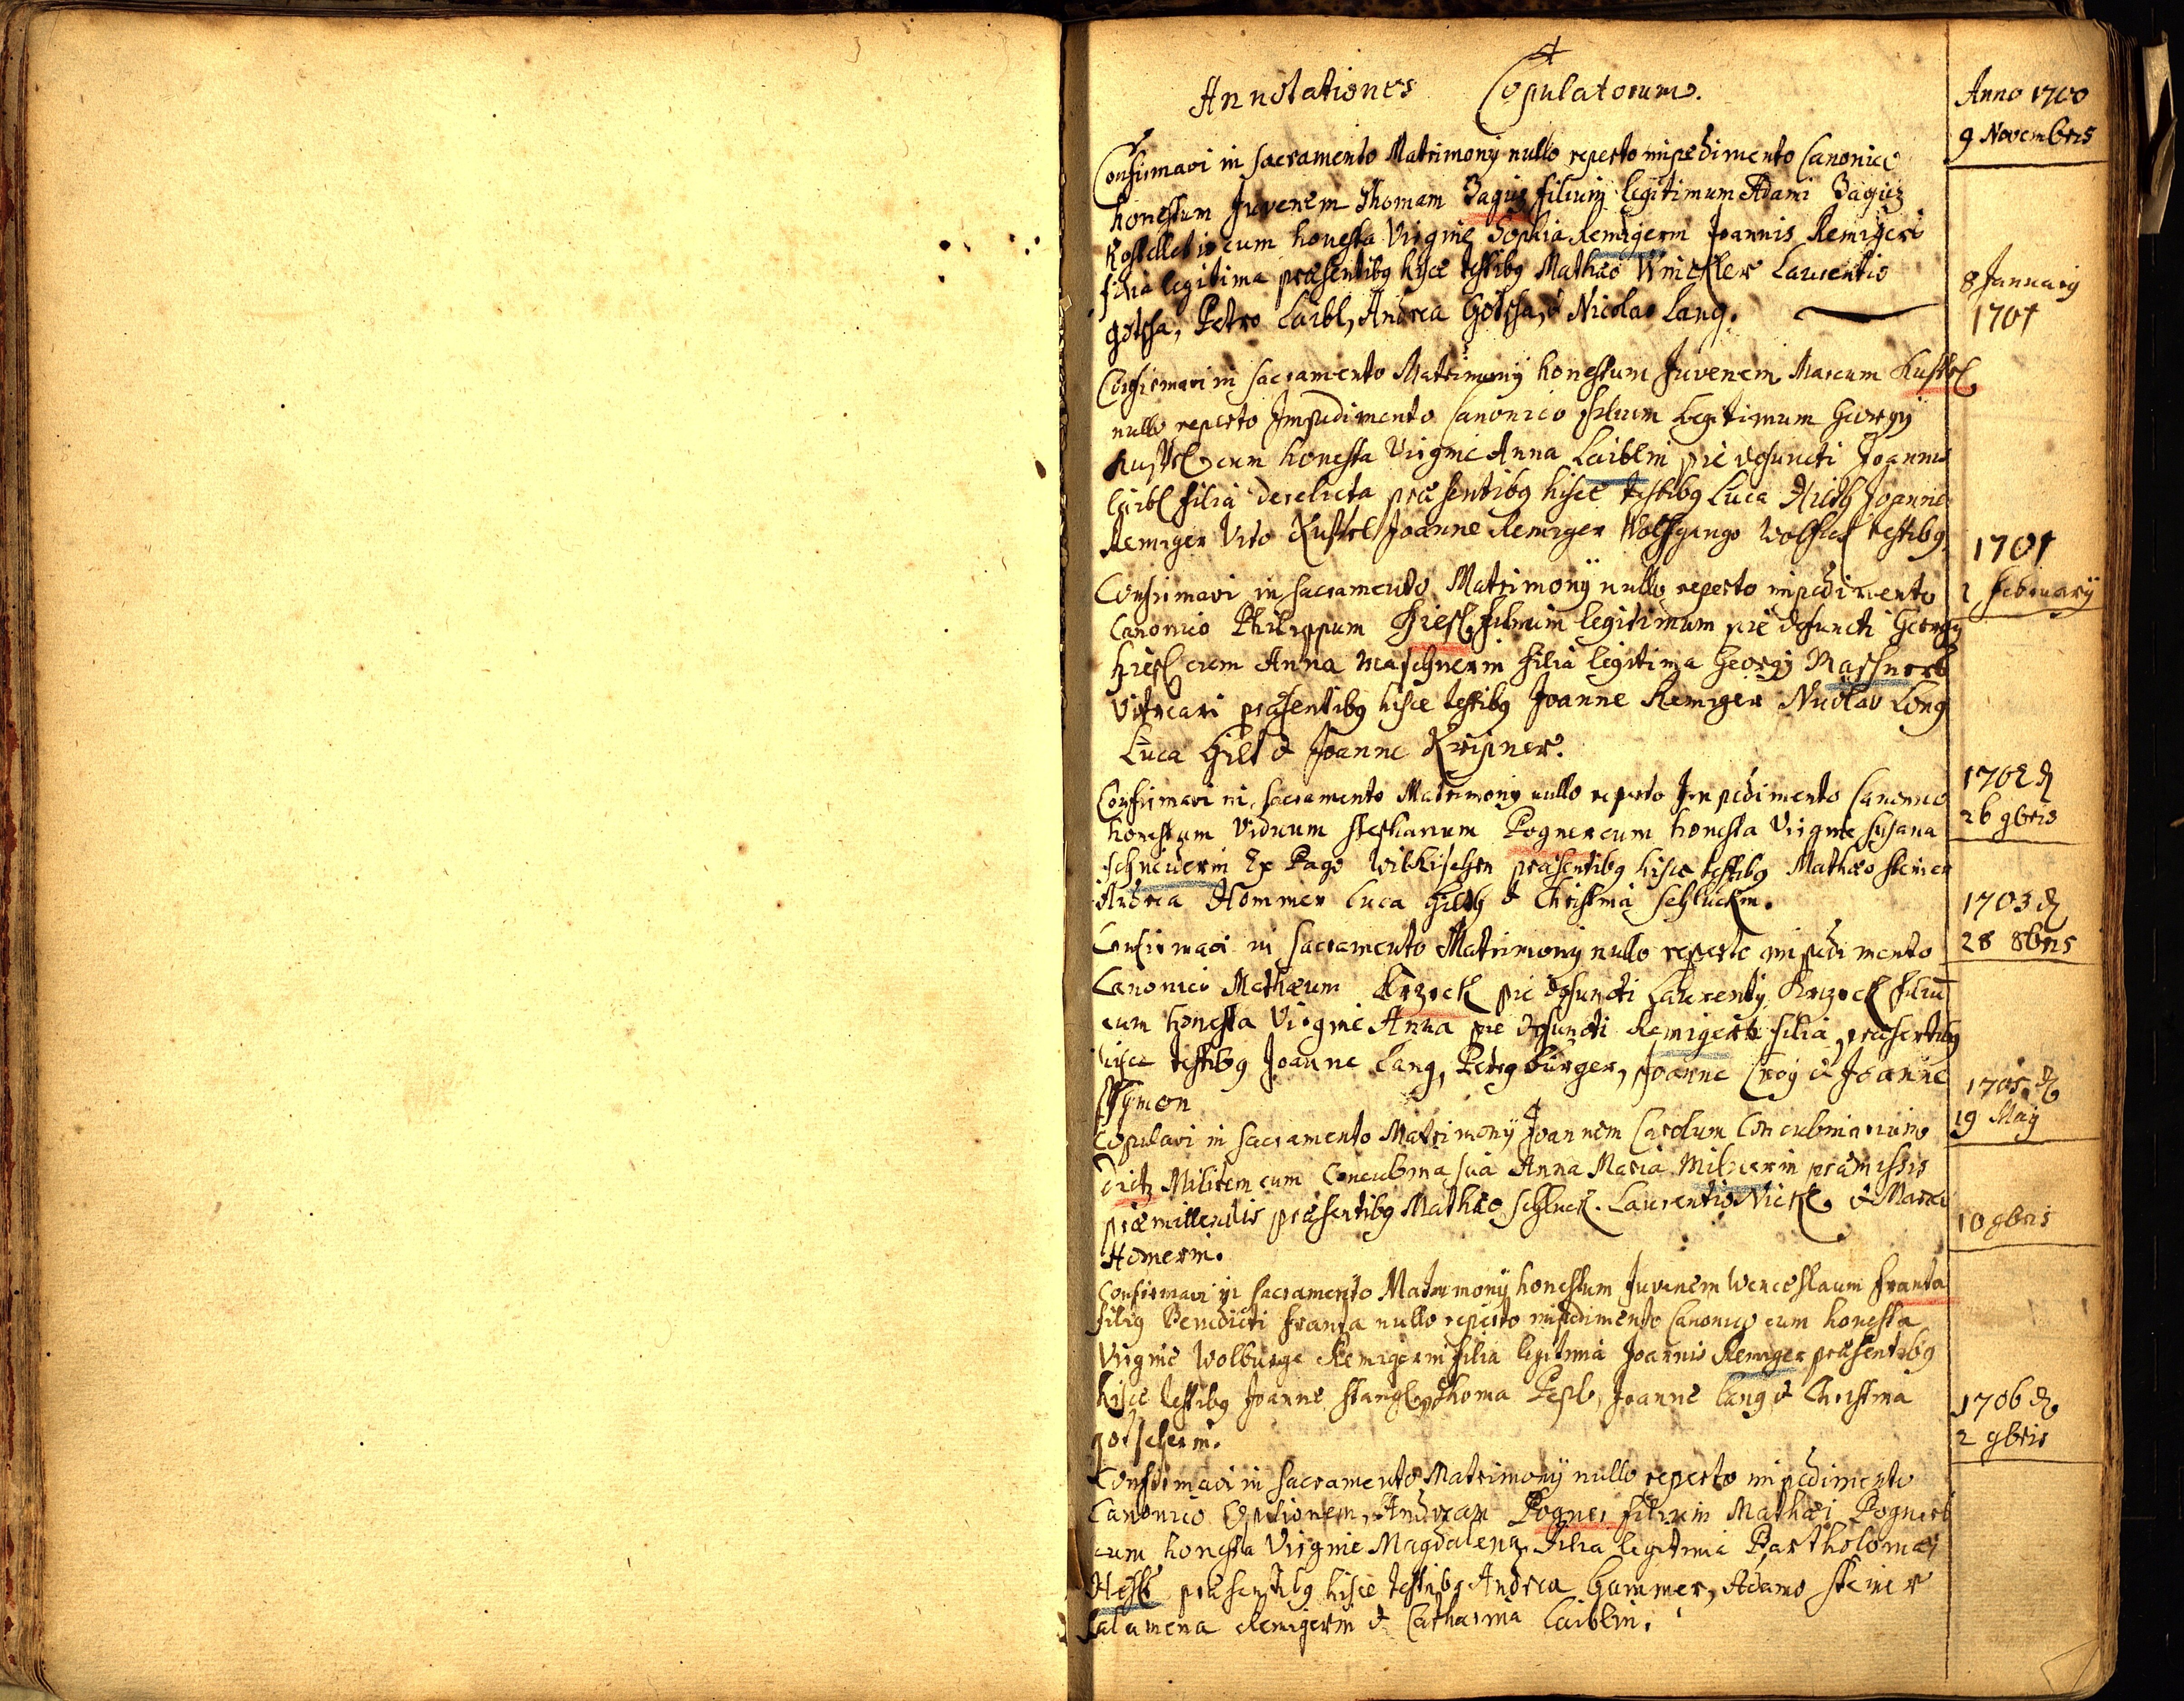 Annotationes Copulatorum.
Anno 1700
9 Novembris
Confirmavi in sacramento Matrimony nullo reperto impedimento Canonico
honestum Juvenem Thomam Zagicz filium legitimum Adami Zagicz
cum honesta Virgine Sophia Remigerin Joannis Remigeri
filia legitima praesentibg hisce testibg Mathaeo Winckler Laurentio
gotscha, Petro Laibl, Andrea Gotscha, & Nicolao Lang.
8 January
1701
Confirmavi in sacramento Matrimony honestum Juvenem Marcum Kustel
nullo reperto Impedimento Canonico filium Legitimum Georgy
Kustel cum honesta Virgine Anna Laiblin pie defuncti Joannis
Laibl filia derelicta praesentibg hisce testibg Luca Joanne
Remiger Vito Kustel Joanne Remiger Wolfgango testibg
1701
February
Confirmavi in sacramento Matrimony nullo reperto impedimento
Canonico Philippum Hiesl filium legitimum pie defuncti Georgy
Hiesl cum Anna Maschnerin filia legitima Georgy Maschnert
Vitreari praesentibg hisce testibg Joanne Remiger Nicolao Long
Luca Hilt & Joanne Kripner.
1702 d
26 9bris
Confirmavi in sacramento Matrimony nullo reperto Impedimento Canonico
honestum Viduum Stephanum Pogner cum honesta Virgine Susana
schneiderin Ex Pago Wilkischen praesentibg hisce testibg Mathaeo steiner
Andrea Hommer Luca & Christina schluckin.
1703 d
28 8bris
Confirmavi in sacramento Matrimony nullo reperto impedimento
Canonico Mathaeum Krzock pie defuncti Laurenty Krzock filiu
cum honesta Virgine Anna pie defuncti Remigert filia, praesentibg
hisce testibg Joanne Lang, Petro burger, Joanne & Joanne
Symon
1705 d
19 May
Copulavi in sacramento Matrimony Joannem Carolum Concubinarium
Militem cum Concubina sua Anna Maria Milnerin praemissis
praemittendis praesentibg Mathaeo schluck. Laurentio Nickl & Maria
Homerin.
10 9bris
Confirmavi in sacramento Matrimony honestum Juvenem Wenceslaum Franta
filig Benedicti franta nullo reperto impedimento Canonico cum honesta
Virgine Wolburga Remigerin filia legitima Joannis Remiger praesentibg
hisce testibg Joanne Stangl, Thoma Joanne Lang & Christina
gotscherin.
1706 d
2 9bris
Confirmavi in sacramento Matrimony nullo reperto impedimento
Canonico Opilionem Andream Pogner filium Mathaei Pogneri
cum honesta Virgine Magdalena filia legitima Bartholomaei
praesentibg hisce testibg Andrea hammer, Adamo steiner
Salamena Remigerin & Catharina Laiblin.